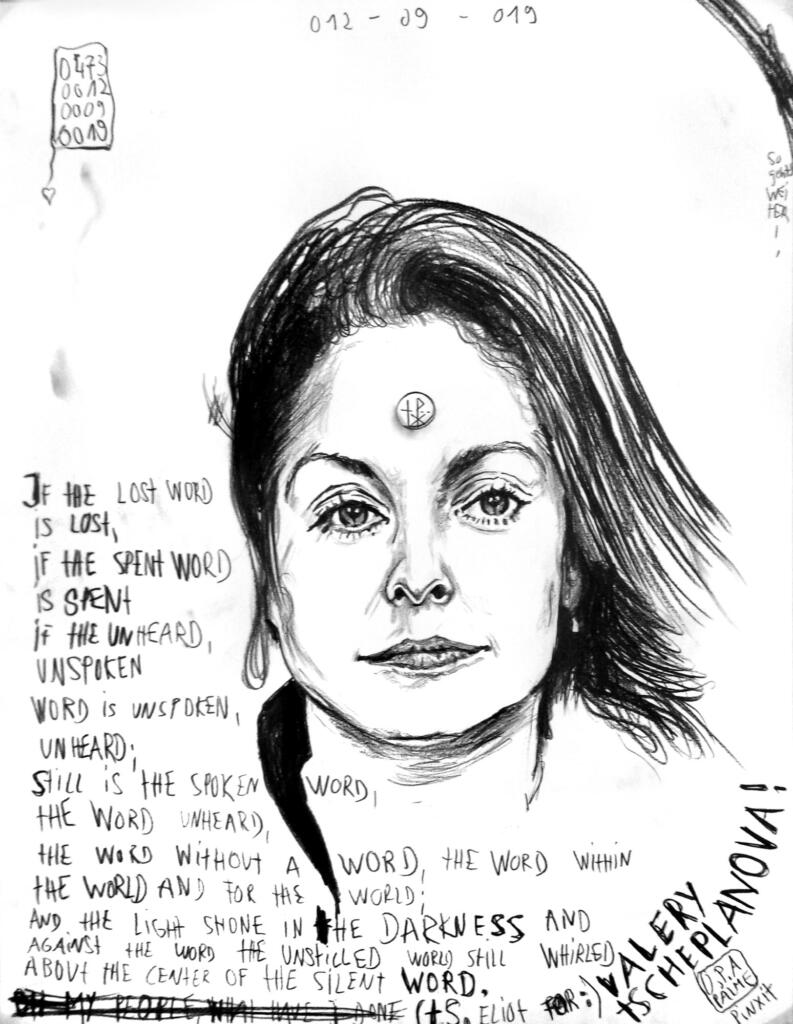 012 - 09 - 019
0473
0012
0009
0019
So
geht's
WEI
TER!
IF THE LOST WORD
IS LOST,
IF THE SPENT WORD
IS SPENT
IF THE UNHEARD,
UNSPOKEN
WORD IS UNSPOKEN,
UNHEARD;
STILL IS THE SPOKEN WORD,
THE WORD UNHEARD,
THE WORD WITHOUT A WORD, THE WORD WITHIN
THE WORLD AND FOR THE WORLD;
AND THE LIGHT SHONE IN THE DARKNESS AND
AGAINST THE WORD THE UNSTILLED WORLD STILL WHIRLED
ABOUT THE CENTER OF THE SILENT WORD.
OH MY PEOPLE, WHAT HAVE I DONE (t.S. Eliot FOR:)
VALERY
tSCHEPLANOVA!
PINXIT